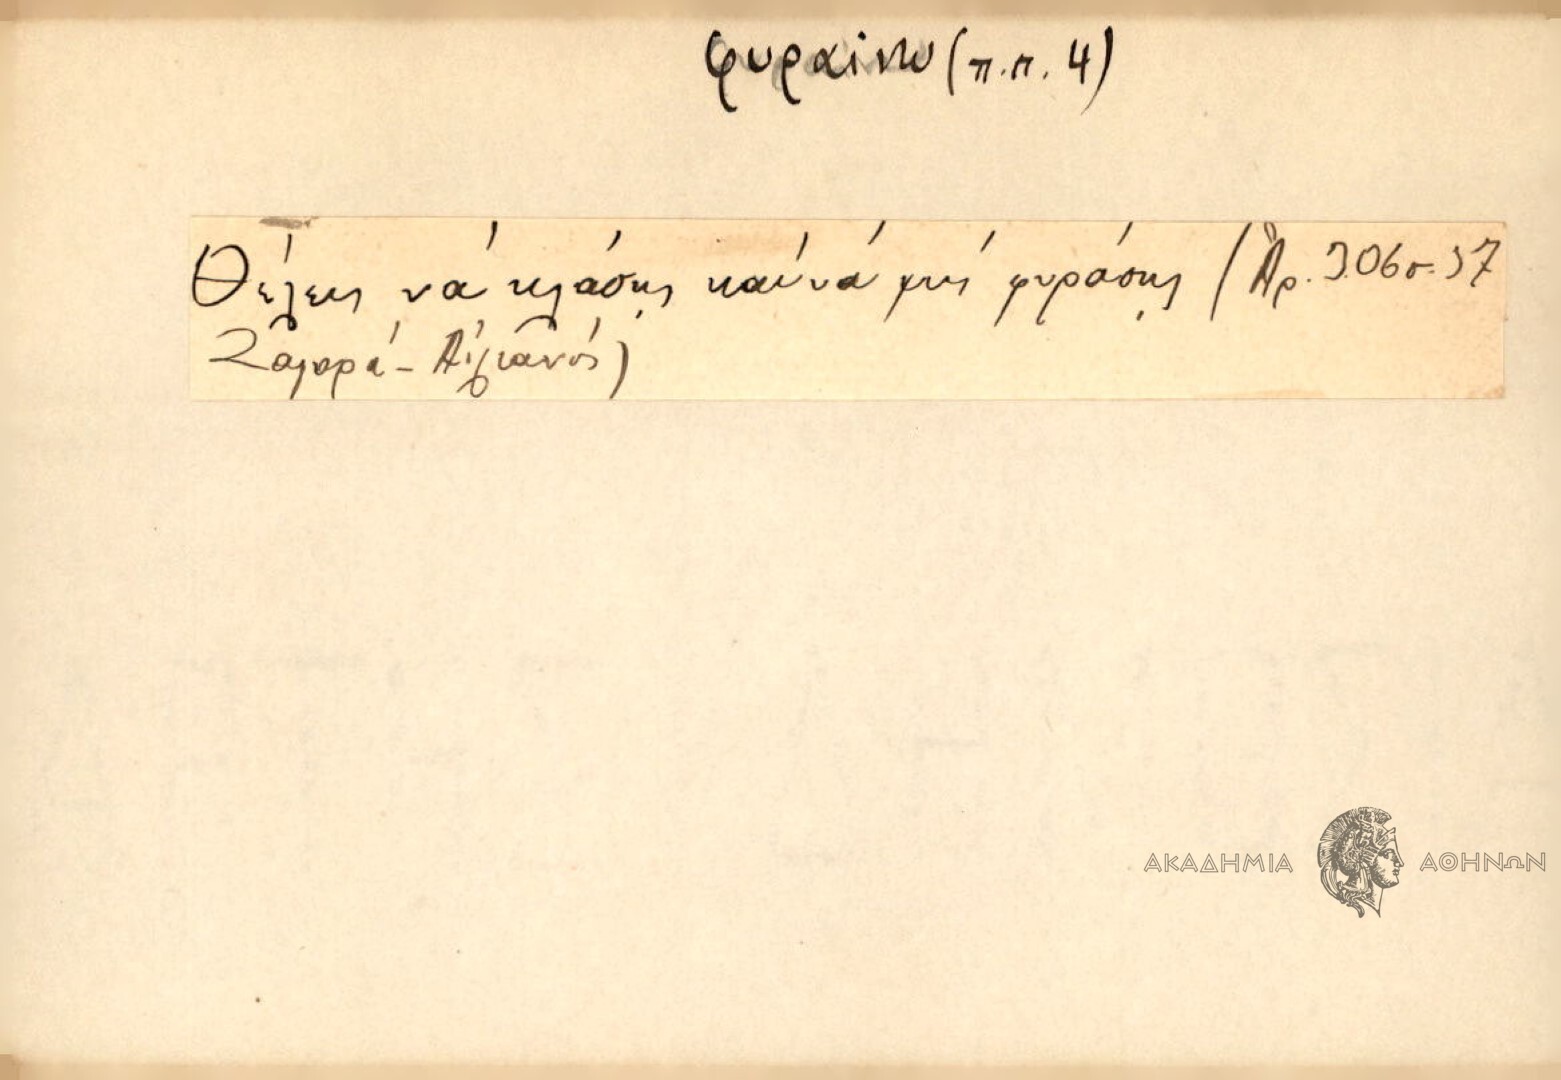 φυραίνω (π.π. 4)
Θέλεις νά κλάσῃς καί νά μή φυράσῃς (Ἀρ. 306 σ. 37
Ζαγορά - Αἰλιανός)
ΑΚΑΔΗΜΙΑ ΑΘΗΝΩΝ